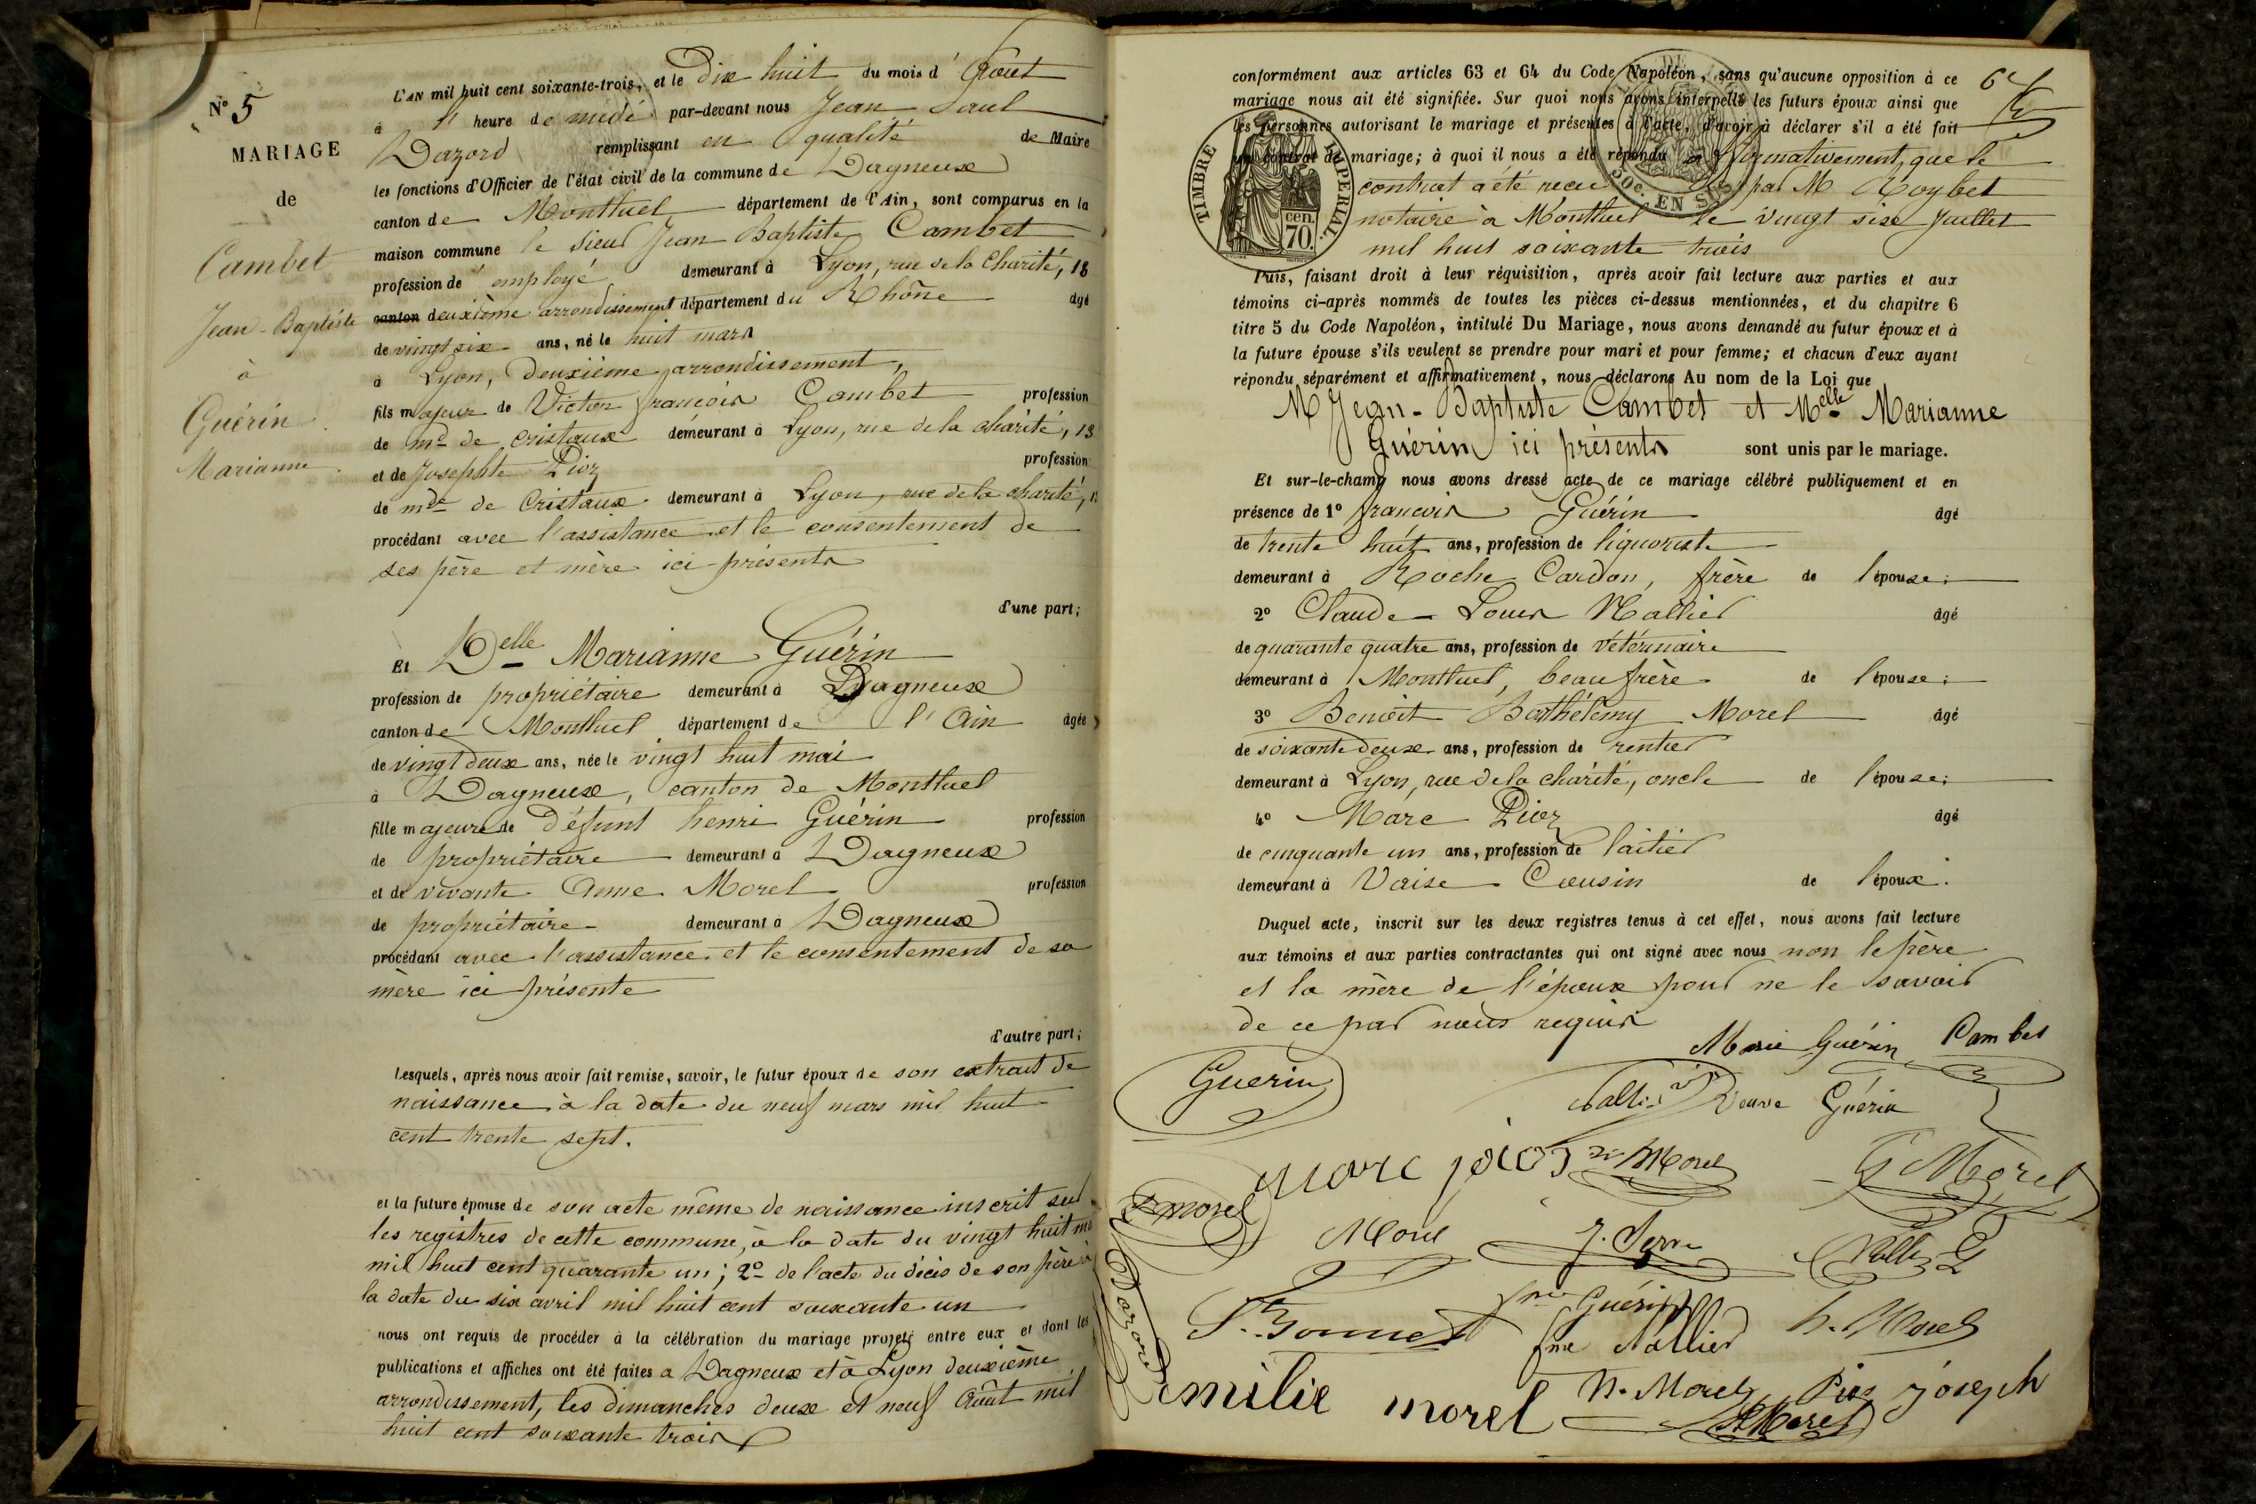 N° 5
MARIAGE
de
Cambet
Jean-Baptiste
à
Guérin
Marianne
L'AN mil huit cent soixante-trois, et le Dix huit du mois d'Août
à heure de midi par-devant nous Jean Paul
Dazord remplissant en qualité de Maire
les fonctions d'Officier de l'état civil de la commune de Dagneux
canton de Montluel département de l'Ain, sont comparus en la
maison commune le sieur Jean Baptiste Cambet
profession de employé demeurant à Lyon, rue de la Charité, 18
canton deuxième arrondissement département du Rhône âgé
de vingt six ans, né le huit mars
à Lyon, deuxième arrondissement,
fils majeur de Victor françois Cambet profession
de md de cristaux demeurant à Lyon, rue de la charité, 13
et de Josephte Pioz profession
de mde de Cristaux demeurant à Lyon, rue de la charité,
procédant avec l'assistance et le consentement de
ses père et mère ici présents
d'une part;
Et Delle Marianne Guérin
profession de propriétaire demeurant à Dagneux
canton de Montluel département de l'Ain âgée
de vingt deux ans, née le vingt huit mai
à Dagneux, canton de Montluel
fille majeure de défunt henri Guérin profession
de propriétaire demeurant à Dagneux
et de vivante Anne Morel profession
de propriétaire demeurant à Dagneux
procédant avec l'assistance et le consentement de sa
mère ici présente
d'autre part;
Lesquels, après nous avoir fait remise, savoir, le futur époux de son extrait de
naissance à la date du neuf mars mil huit
cent trente sept.
et la future épouse de son acte même de naissance inscrit sur
les registres de cette commune, à la date du vingt huit mai
mil huit cent quarante un; 2° de l'acte du décès de son père à
la date du six avril mil huit cent soixante un
nous ont requis de procéder à la célébration du mariage projeté entre eux et dont les
publications et affiches ont été faites à Dagneux et à Lyon deuxième
arrondissement, les dimanches deux et neuf Août mil
huit cent soixante trois
conformément aux articles 63 et 64 du Code Napoléon, sans qu'aucune opposition à ce
mariage nous ait été signifiée. Sur quoi nous avons interpellé les futurs époux ainsi que
les personnes autorisant le mariage et présentes à l'acte, d'avoir à déclarer s'il a été fait
un contrat de mariage; à quoi il nous a été répondu affirmativement, que le
contrat a été recu par M Roybet
notaire à Montluel le vingt six Juillet
mil huit soixante trois
TIMBRE IMPERIAL.
70 cen.
50c. EN SUS
Puis, faisant droit à leur réquisition, après avoir fait lecture aux parties et aux
témoins ci-après nommés de toutes les pièces ci-dessus mentionnées, et du chapitre 6
titre 5 du Code Napoléon, intitulé Du Mariage, nous avons demandé au futur époux et à
la future épouse s'ils veulent se prendre pour mari et pour femme; et chacun d'eux ayant
répondu séparément et affirmativement, nous déclarons Au nom de la Loi que
M Jean-Baptiste Cambet et Melle Marianne
Guérin ici présents sont unis par le mariage.
Et sur-le-champ nous avons dressé acte de ce mariage célébré publiquement et en
présence de 1° françois Guérin âgé
de trente huit ans, profession de liquoriste
demeurant à Roche Cardon, frère de l'épouse;
2° Claude Louis Nallier âgé
de quarante quatre ans, profession de vétérinaire
demeurant à Montluel, beau frère de l'épouse;
3° Benoit Barthélemy Morel âgé
de soixante deux ans, profession de rentier
demeurant à Lyon, rue de la charité, oncle de l'épouse;
4° Marc Pioz âgé
de cinquante un ans, profession de laitier
demeurant à Vaise Cousin de l'époux.
Duquel acte, inscrit sur les deux registres tenus à cet effet, nous avons fait lecture
aux témoins et aux parties contractantes qui ont signé avec nous non le père
et la mère de l'époux pour ne le savoir
de ce par nous requis
Marie Guérin Cambet
Guerin
Nallier Veuve Guérin
marc pioz Morel G Morel
Morel
Morel J. Serre
Dazord
fme Guérin
fme Nallier h. Morel
Emilie morel N. Morel Pioz joseph
Morel